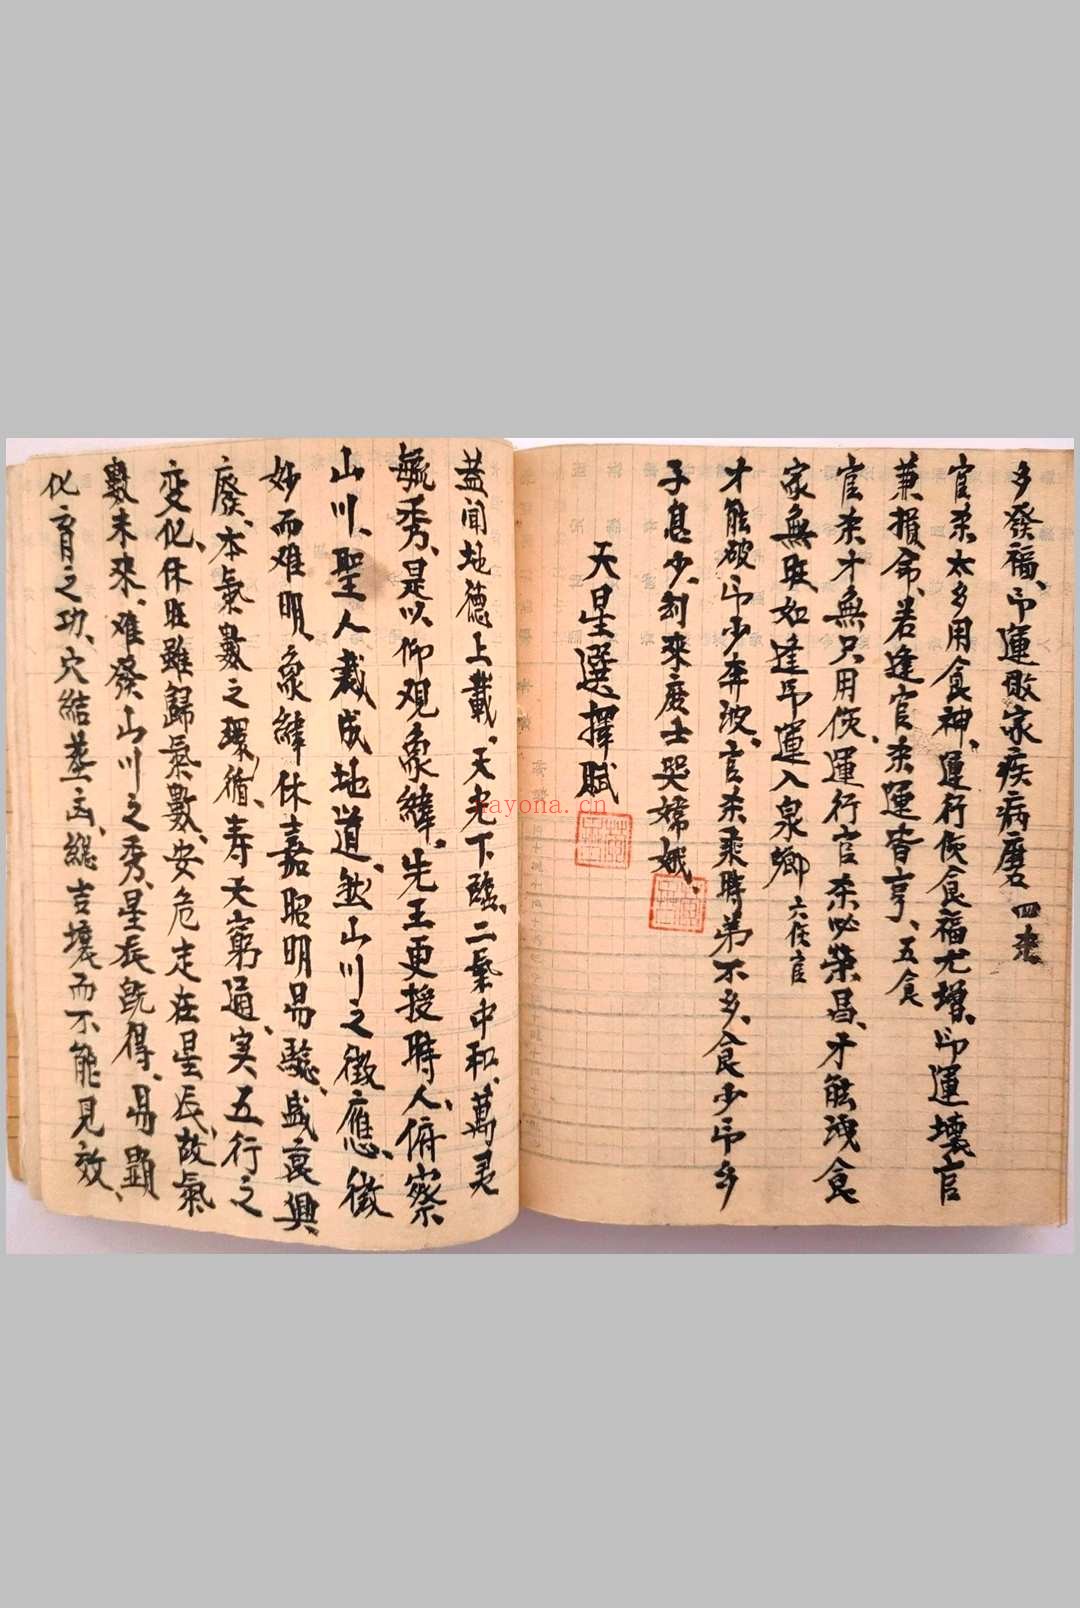 多發福、印運敗家疾病磨 四杀
官杀太多用食神、運行傷食福尤增、印運壞官
兼損命、若逢官杀運皆亨、五食
官杀才無只用傷、運行官杀必榮昌、才能洩食
家無旺、如逢印運入泉鄉 六任官
才能破印少奔波、官杀乘時弟不多、食少印多
子息少、刻來度士哭嫦娥、
天星選擇賦
蓋聞地德上載、天光下臨、二氣中和、萬灵
毓秀、是以仰观象緯、先王更授時人、俯察
山川、聖人裁成地道、然山川之徵應、徵
妙而难明、象緯休嘉昭明易驗、盛衰興
廢、本氣數之環循、寿夭窮通、实五行之
变化、休旺雖歸氣數、安危走在星辰、故氣
數未來、难發山川之秀、星辰既得、易顕
化育之功、穴結葢凶、縂吉壤而不能見效、
kayona.cn